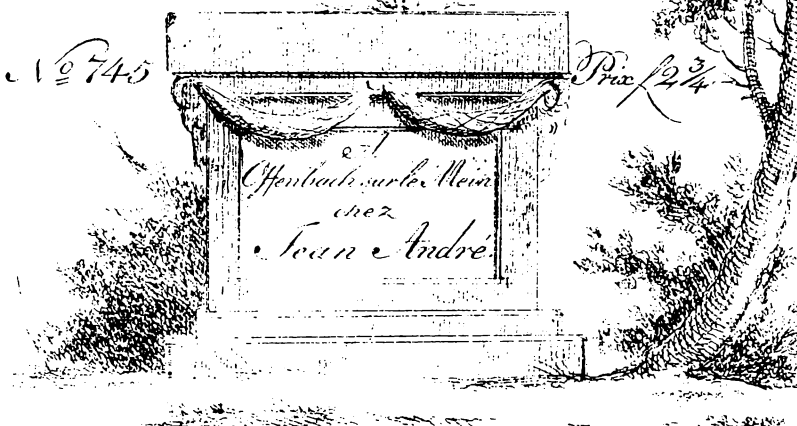 No 745
Prix f 2 3/4
à
Offenbach sur le Mein
chez
Jean André.